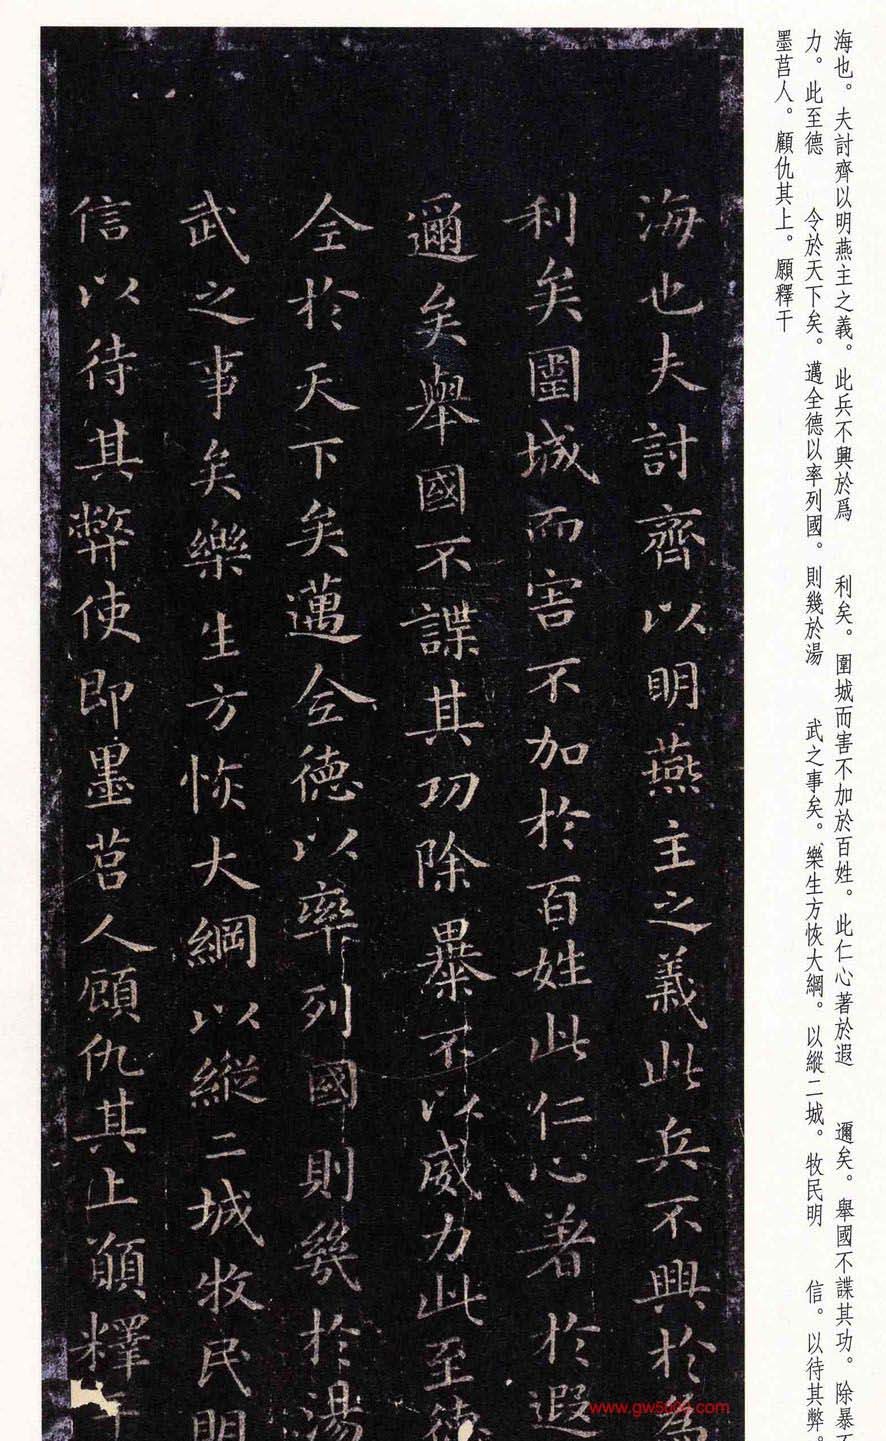 海也。夫討齊以明燕主之義。此兵不興於爲　利矣。圍城而害不加於百姓。此仁心著於遐　邇矣。舉國不諜其功。除暴不
力。此至德　令於天下矣。邁全德以率列國。則幾於湯　武之事矣。樂生方恢大綱。以縱二城。牧民明　信。以待其弊。
墨莒人。顧仇其上。願釋干
海也夫討齊以明燕主之義此兵不興於為
利矣圍城而害不加於百姓此仁心著於遐
邇矣舉國不諜其功除暴不以威力此至德
全於天下矣邁全德以率列國則幾於湯
武之事矣樂生方恢大綱以縱二城牧民明
信以待其弊使即墨莒人顧仇其上願釋干